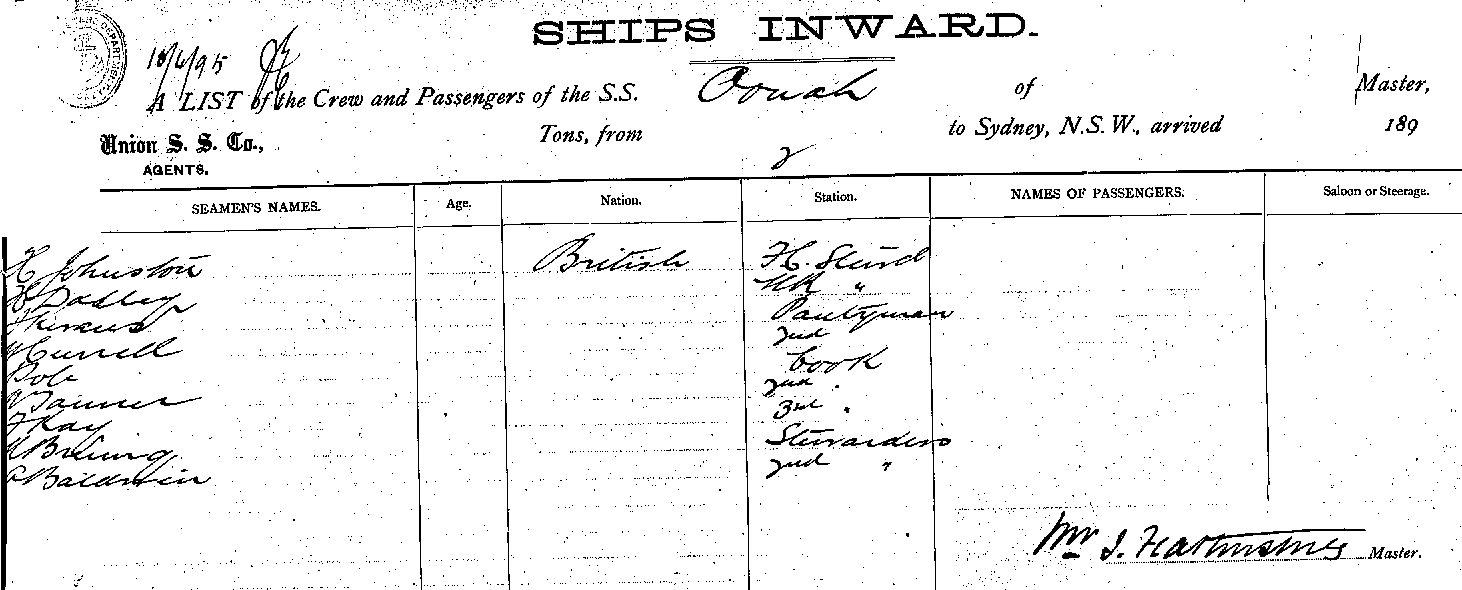 SHIPS INWARD.
18/6/95
A LIST of the Crew and Passengers of the S.S. Oonah of Master,
Union S. S. Co., Tons, from to Sydney, N.S.W., arrived 189
AGENTS. 2
SEAMEN'S NAMES. Age. Nation. Station. NAMES OF PASSENGERS. Saloon or Steerage.
H Johnston British F.C. Stewd
Dadley "
Pantryman
W Currell 2nd
Cook
Tanner 2nd "
F Kay 3rd "
Stewardess
Baldwin 2nd "
Mr J. Master.